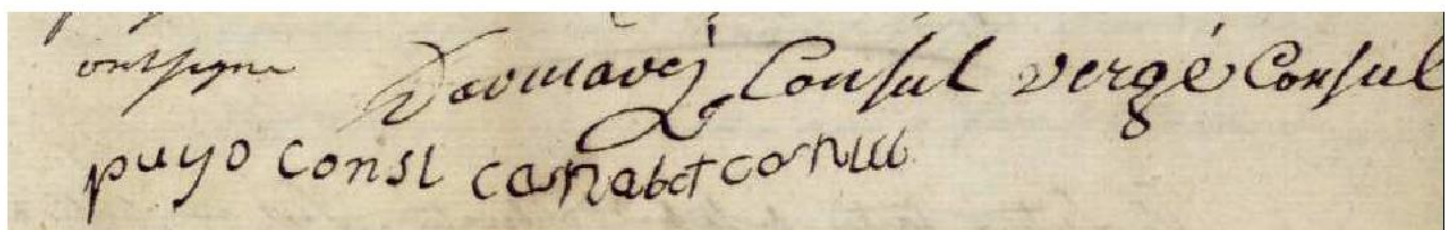 ont signe Doumavej Consul vergé Consul
puyo consl casnabet